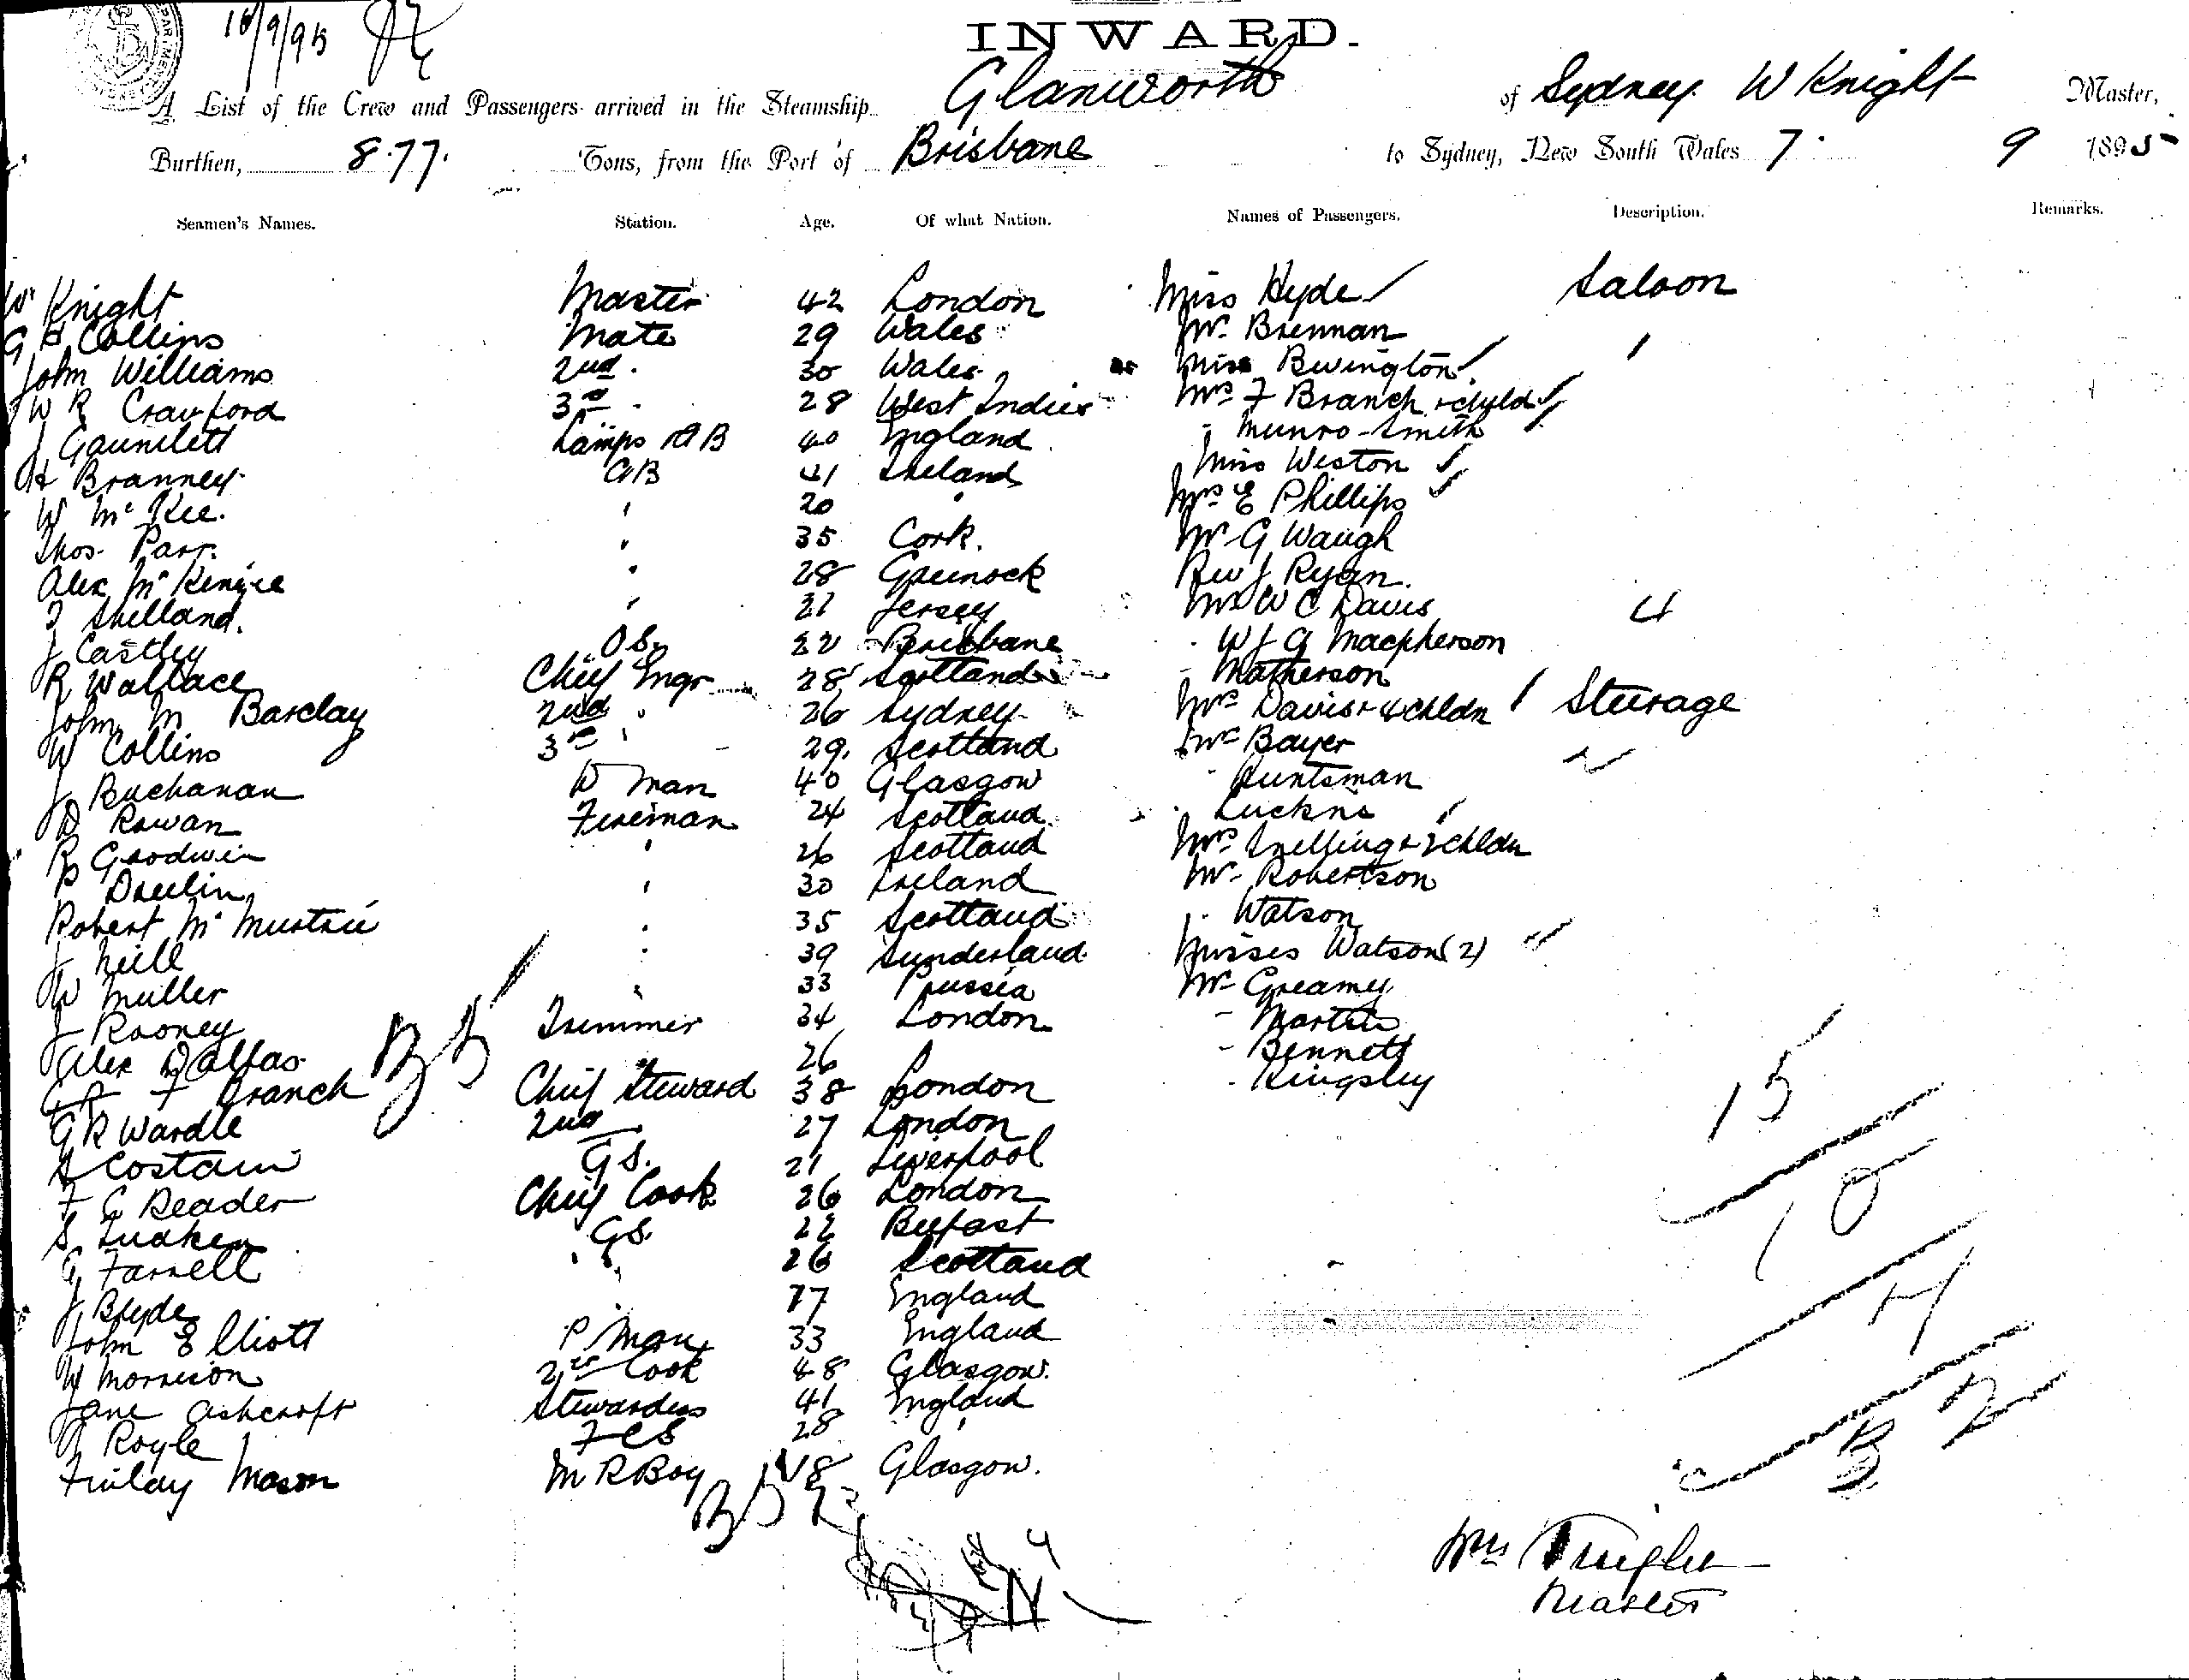 16/9/95
INWARD.
A List of the Crew and Passengers arrived in the Steamship Glanworth of Sydney W Knight Master,
Burthen, 877 Tons, from the Port of Brisbane to Sydney, New South Wales 7 9 1895
Seamen's Names. Station. Age. Of what Nation. Names of Passengers. Description. Remarks.
W Knight Master 42 London Miss Hyde Saloon
G H Collins Mate 29 Wales Mr Brennan
John Williams 2nd 30 Wales Miss Bevington
W R Crawford 3rd 28 West Indies Mrs F Branch + child
J Gauntlett Lamps AB 40 England Munro-Smith
H Branney AB 41 Ireland Miss Weston
W McKee. " 20 " Mrs E Phillips
Thos Parr. " 35 Cork. Mr G Waugh
Alex McKenzie " 28 Greenock Rev J Ryan.
J Shelland. " 21 Jersey Mr W C Davis 4
J Castley O.S. 22 Brisbane W J G Macpherson
R Wallace Chief Engr 28 Scotland Matherson
John M Barclay 2nd " 26 Sydney Mrs Davis + 4 chldn Steerage
W Collins 3rd " 29. Scotland Mr Bayer
J Buchanan D Man 40 Glasgow Huntsman
D Rowan Fireman 24 Scotland
R Goodwin " 26 Scotland Mrs Snelling + 2 chldn
P Devlin " 30 Ireland Mr Robertson
Robert McMustrie " 35 Scotland Watson
J Neill " 39 Sunderland Misses Watson (2)
W Muller " 33 Prussia Mr Greamy
J Rooney Trimmer 34 London Martin
Alex Dallas 26 Bennett
F Branch Chief Steward 38 London Kingsley
G R Wardle 2nd 27 London 15
A Costain G.S. 21 Liverpool
F C Reader Chief Cook 26 London 10
S GS. 22 Belfast
G Farrell " 26 Scotland
J Blyde " 17 England 4
John Elliott P Man 33 England
W Morrison 2nd Cook 48 Glasgow. 2
Jane Ashcroft Stewardess 41 England
Royle FCS 28 "
Finlay Mason M R Boy 18 Glasgow.
Wm Knight
Master